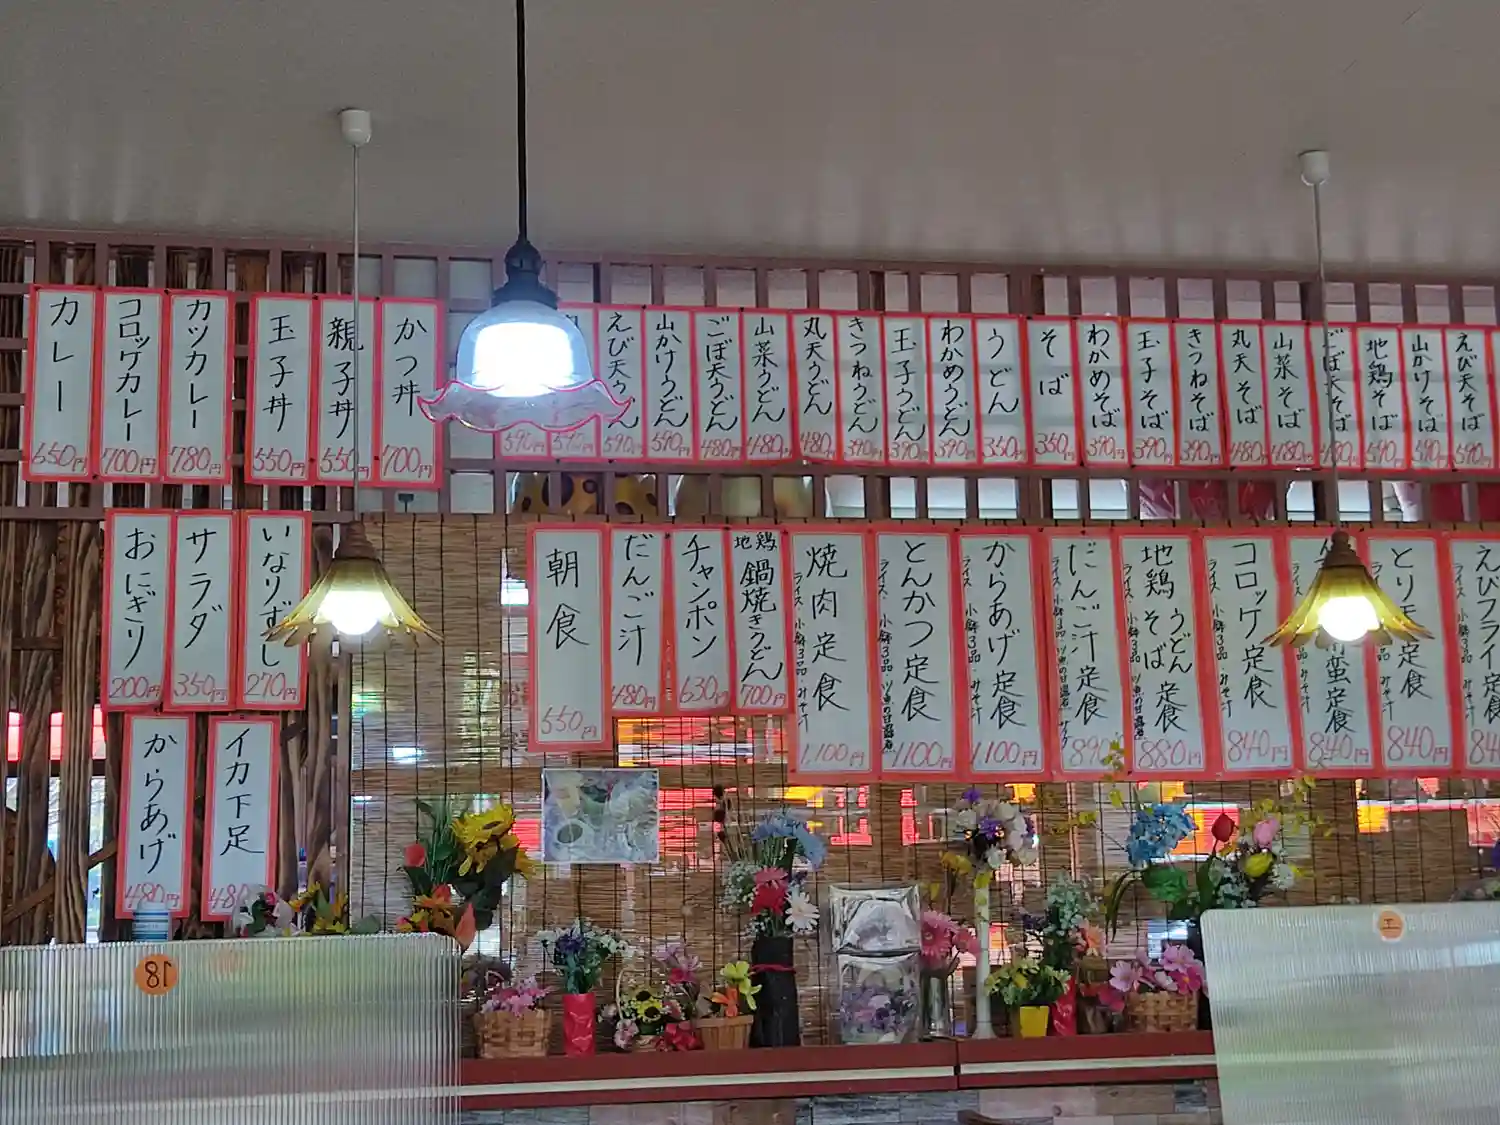 カレー
650円
コロッケカレー
700円
カツカレー
780円
玉子丼
550円
親子丼
550円
かつ丼
700円
590円
590円
えび天うどん
590円
山かけうどん
590円
ごぼ天うどん
480円
山菜うどん
480円
丸天うどん
480円
きつねうどん
390円
玉子うどん
390円
わかめうどん
390円
うどん
350円
そば
350円
わかめそば
390円
玉子そば
390円
きつねそば
390円
丸天そば
480円
山菜そば
480円
ごぼ天そば
480円
地鶏そば
590円
山かけそば
590円
えび天そば
590円
おにぎり
200円
サラダ
350円
いなりずし
270円
朝食
550円
だんご汁
480円
チャンポン
630円
地鶏
鍋焼きうどん
700円
焼肉定食
ライス 小鉢3品 みそ汁
1,100円
とんかつ定食
ライス 小鉢3品
1,100円
からあげ定食
ライス 小鉢3品 みそ汁
1,100円
だんご汁定食
ライス 小鉢3品
890円
地鶏 うどん そば 定食
ライス 小鉢3品
880円
コロッケ定食
ライス 小鉢3品 みそ汁
840円
南蛮定食
みそ汁
840円
とり天定食
みそ汁
840円
えびフライ定食
ライス 小鉢3品 みそ汁
からあげ
480円
イカ下足
480
18